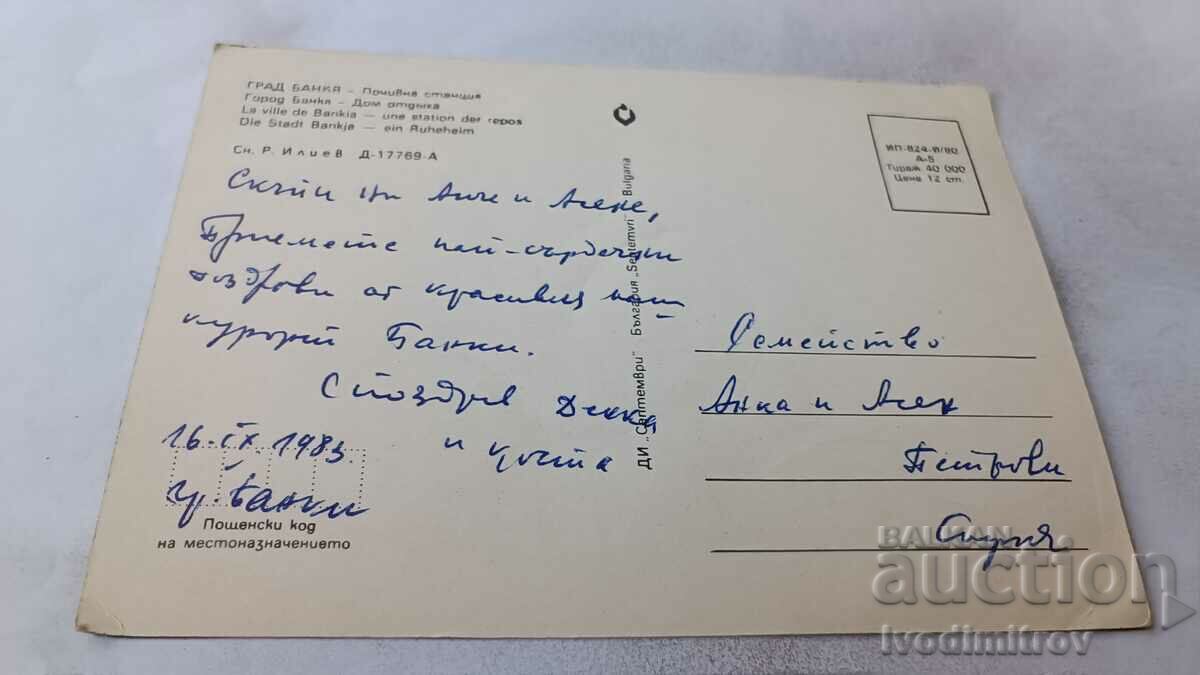 ГРАД БАНКЯ – Почивна станция
Город Банкя – Дом отдыха
La ville de Bankia — une station der repos
Die Stadt Bankja — ein Ruheheim
Сн. Р. Илиев Д-17769-А
Скъпи ни Анче и Асене,
Приемете най-сърдечни
поздрави от красивия наш
курорт Банки.
С поздрав Денка
и Коста
16.IX.1983
гр. Банки
Пощенски код
на местоназначението
ДИ „Септември" България „Septemvri" Bulgaria
ИП-824-И/80
А-5
Тираж 40 000
Цена 12 ст.
Семейство
Анка и Асен
Петрови
София
BALKAN
auction
Ivodimitrov